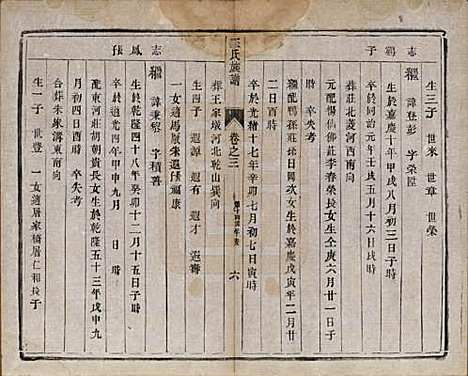 志鶴子
生三子 世米 世章 世榮
諱登彭 字榮屋
生於嘉慶十年甲戌八月初三日子時
卒於同治元年壬戌五月十六日戌時
葬莊北菱河西南向
元配楊仙佛莊李春榮長女生仝庚六月廿一日子
時 卒失考
繼配鴨孫莊北日周次女生於嘉慶戊寅年二月廿
二日酉時
卒於光緒十七年辛卯七月初七日寅時
葬王家墩河北乾山巽向
生四子 遐譚 遐有 遐才 遐壽
一女適馬展朱遐恆福康
王氏族譜
卷之三
六
志鳳長
諱秉鄉 字積善
生於乾隆四十八年癸卯十二月十五日子時
卒於道光四年甲申九月 日 時
配東河莊胡朝貴長女生於乾隆五十三年戊申九
月初四日時 卒失考
合葬朱家溝東南向
生一子 世登 一女適居家橋居仁和長子